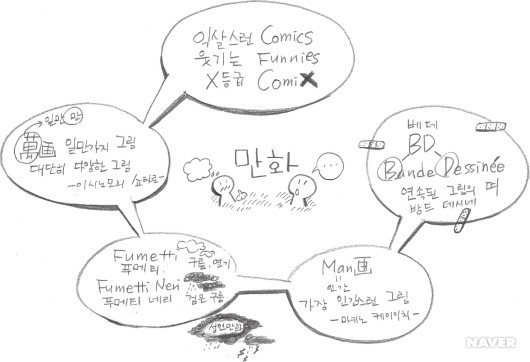 익살스런 Comics
웃기는 Funnies
X등급 ComiX
일만 만
萬画 일만가지 그림
대단히 다양한 그림
-이시노모리 쇼타로-
만화
...
베데
BD
Bande Dessinée
연속된 그림의 띠
방드 데시네
Fumetti 구름, 연기
푸메티
Fumetti Neri 검은 구름
푸메티 네리
성인만화
Man画
인간
가장 인간스런 그림
-마키노 케이이치-
NAVER